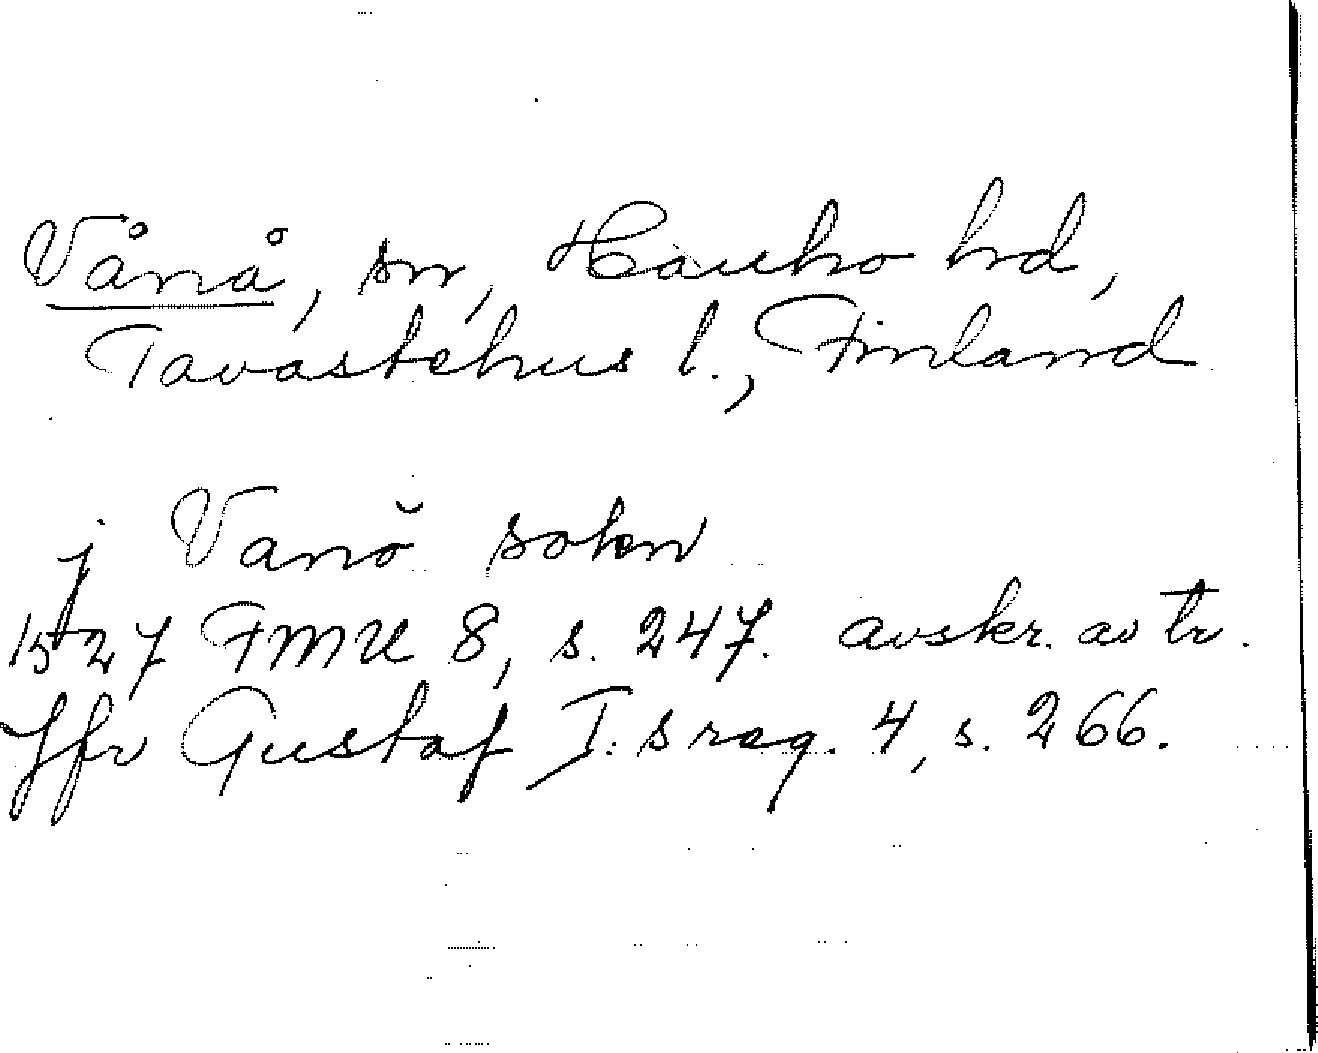 Vånå, sn, Hauho hd,
Tavastehus l., Finland
j Vanŏ sokn
1527 FMU 8, s. 247. avskr. av tr.
Jfr Gustaf I:s reg. 4, s. 266.